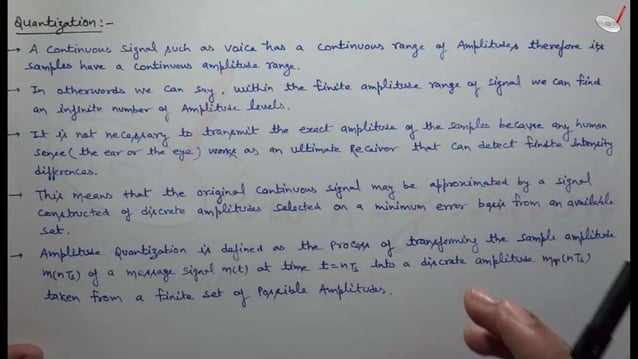 Quantization :-
→ A Continuous Signal such as voice has a continuous range of Amplitudes therefore its
samples have a continuous amplitude range.
→ In otherwords we can say, within the finite amplitude range of signal we can find
an infinite number of Amplitude levels.
→ It is not necessary to transmit the exact amplitude of the samples because any human
sense (the ear or the eye) works as an ultimate Receiver that can detect finite intensity
differences.
→ This means that the original continuous signal may be approximated by a signal
constructed of discrete amplitudes selected on a minimum error basis from an available
set.
→ Amplitude Quantization is defined as the Process of transforming the sample amplitude
m(nTs) of a message signal m(t) at time t=nTs into a discrete amplitude (nTs)
taken from a finite set of Possible Amplitudes.